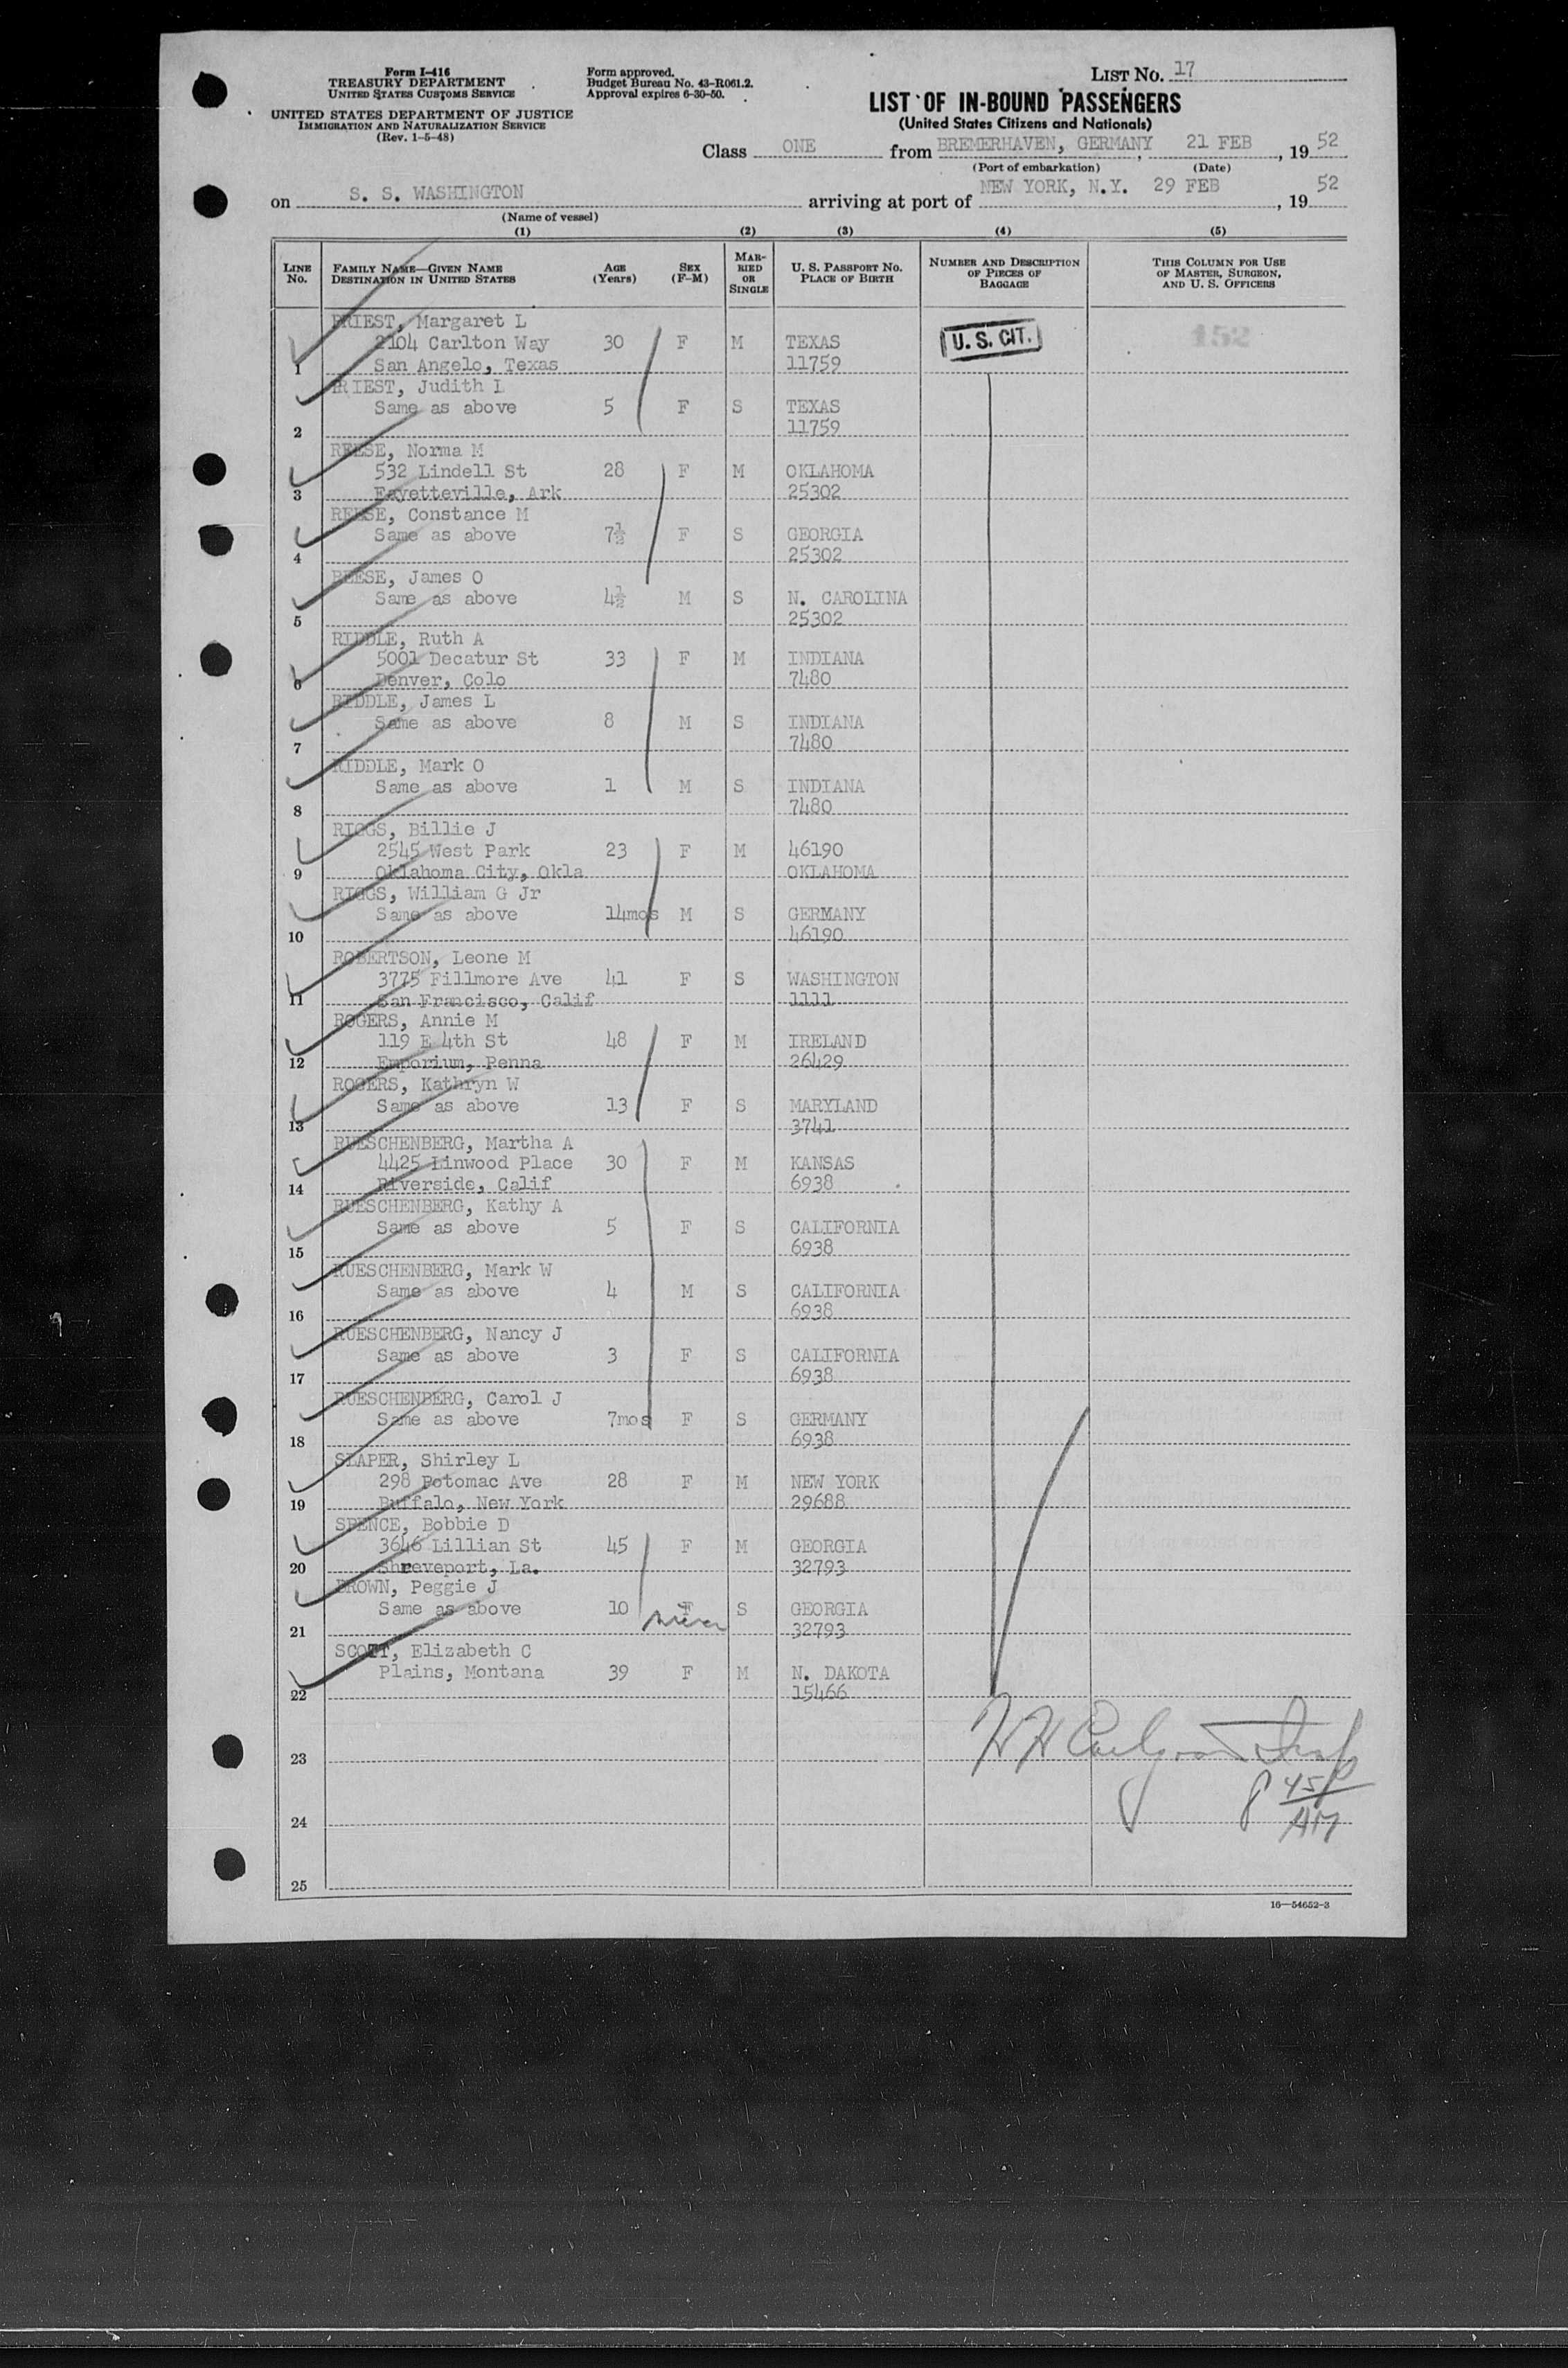 Form I-416
TREASURY DEPARTMENT
UNITED STATES CUSTOMS SERVICE
UNITED STATES DEPARTMENT OF JUSTICE
IMMIGRATION AND NATURALIZATION SERVICE
(Rev. 1-5-48)
Form approved.
Budget Bureau No. 43-R061.2.
Approval expires 6-30-50.
LIST No. 17
LIST OF IN-BOUND PASSENGERS
(United States Citizens and Nationals)
Class ONE from BREMERHAVEN, GERMANY, 21 FEB, 19 52
(Port of embarkation) (Date)
on S. S. WASHINGTON arriving at port of NEW YORK, N.Y. 29 FEB, 19 52
(Name of vessel)
(1) (2) (3) (4) (5)
LINE No. FAMILY NAME—GIVEN NAME DESTINATION IN UNITED STATES AGE (Years) SEX (F-M) MARRIED OR SINGLE U. S. PASSPORT No. PLACE OF BIRTH NUMBER AND DESCRIPTION OF PIECES OF BAGGAGE THIS COLUMN FOR USE OF MASTER, SURGEON, AND U. S. OFFICERS
PRIEST, Margaret L
2104 Carlton Way 30 F M TEXAS U. S. CIT. 152
1 San Angelo, Texas 11759
PRIEST, Judith L
Same as above 5 F S TEXAS
2 11759
REESE, Norma M
532 Lindell St 28 F M OKLAHOMA
3 Fayetteville, Ark 25302
REESE, Constance M
Same as above 7½ F S GEORGIA
4 25302
REESE, James O
Same as above 4½ M S N. CAROLINA
5 25302
RIDDLE, Ruth A
5001 Decatur St 33 F M INDIANA
6 Denver, Colo 7480
RIDDLE, James L
Same as above 8 M S INDIANA
7 7480
RIDDLE, Mark O
Same as above 1 M S INDIANA
8 7480
RIGGS, Billie J
2545 West Park 23 F M 46190
9 Oklahoma City, Okla OKLAHOMA
RIGGS, William G Jr
Same as above 14mos M S GERMANY
10 46190
ROBERTSON, Leone M
3775 Fillmore Ave 41 F S WASHINGTON
11 San Francisco, Calif 1111
ROGERS, Annie M
119 E 4th St 48 F M IRELAND
12 Emporium, Penna 26429
ROGERS, Kathryn W
Same as above 13 F S MARYLAND
13 3741
RUESCHENBERG, Martha A
4425 Linwood Place 30 F M KANSAS
14 Riverside, Calif 6938
RUESCHENBERG, Kathy A
Same as above 5 F S CALIFORNIA
15 6938
RUESCHENBERG, Mark W
Same as above 4 M S CALIFORNIA
16 6938
RUESCHENBERG, Nancy J
Same as above 3 F S CALIFORNIA
17 6938
RUESCHENBERG, Carol J
Same as above 7mos F S GERMANY
18 6938
SLAPER, Shirley L
298 Potomac Ave 28 F M NEW YORK
19 Buffalo, New York 29688
SPENCE, Bobbie D
3646 Lillian St 45 F M GEORGIA
20 Shreveport, La. 32793
BROWN, Peggie J
Same as above 10 F S GEORGIA
21 niece 32793
SCOTT, Elizabeth C
Plains, Montana 39 F M N. DAKOTA
22 15466
23
24 8 45 AM
25
16—54652-3